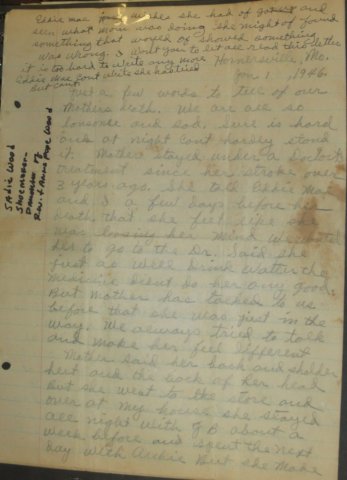 Eddie Mae wishes she had of got and
seen what mom was doing. She might of found
something that worked or showed something
was wrong. I want you to let all read this letter
it is too hard to write any more
Eddie Mae Cont write she has tried
But cont.
Hornersville, Mo.
Jan 1 1946
Just a few words to tell of our
Mothers death. We are all so
lonsome and sad. Sure is hard
and at night Cont hardly stand
it. Mother stayed under a Doctors
treatment since her stroke over
3 years ago. She told Eddie Mae
and I a few days before her
death that she feel like she
was losing her mind we wanted
her to go to the Dr. Said she
just as well drink watter the
medicine dident do her any good.
But mother has talked to us
before that she was just in the
way. We always tried to talk
and make her feel different
Mother said her back and sholder
hurt and the back of her head
But she went to the store and
over at my house she stayed
all night with J B about a
week before and spent the next
day with Auckie But she made
Sadie Wood
Shoemaker-
Daughter of
Rev. + Anna Pope Wood